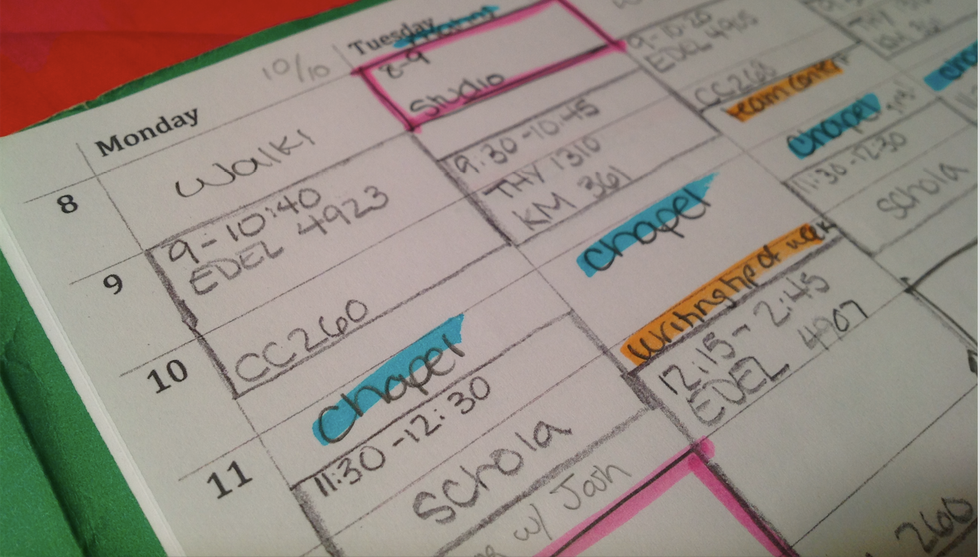 Monday
10/10
Tuesday
8
Walk!
9-10:40
EDEL 4923
9
CC260
10
Chapel
11:30-12:30
11
Schola
w/ Josh
8-9
Studio
9:30-10:45
THY 1310
KM 361
Chapel
Writing tip of week
12:15-2:45
EDEL 4907
9-10:20
EDEL 4905
CC268
team
Chapel
11:30-12:30
Schola
THY
KM 361
260